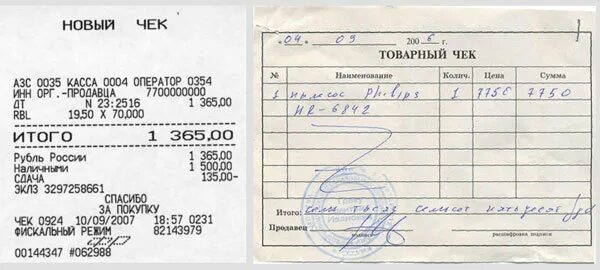 НОВЫЙ ЧЕК
АЗС 0035 КАССА 0004 ОПЕРАТОР 0354
ИНН ОРГ.-ПРОДАВЦА 7700000000
ДТ N 23:2516 1 365,00
RBL 19,50 X 70,000
ИТОГО 1 365,00
Рубль России 1 365,00
Наличными 1 500,00
СДАЧА 135,00-
ЭКЛЗ 3297258661
СПАСИБО
ЗА ПОКУПКУ
ЧЕК 0924 10/09/2007 18:57 0231
ФИСКАЛЬНЫЙ РЕЖИМ 82143979
00144347 #062988
04 09 2006 г.
ТОВАРНЫЙ ЧЕК
№ Наименование Колич. Цена Сумма
1 пылесос Philips 1 7750 7750
HR-6842
Итого: семь тысяч семьсот пятьдесят руб
Продавец
подпись расшифровка подписи